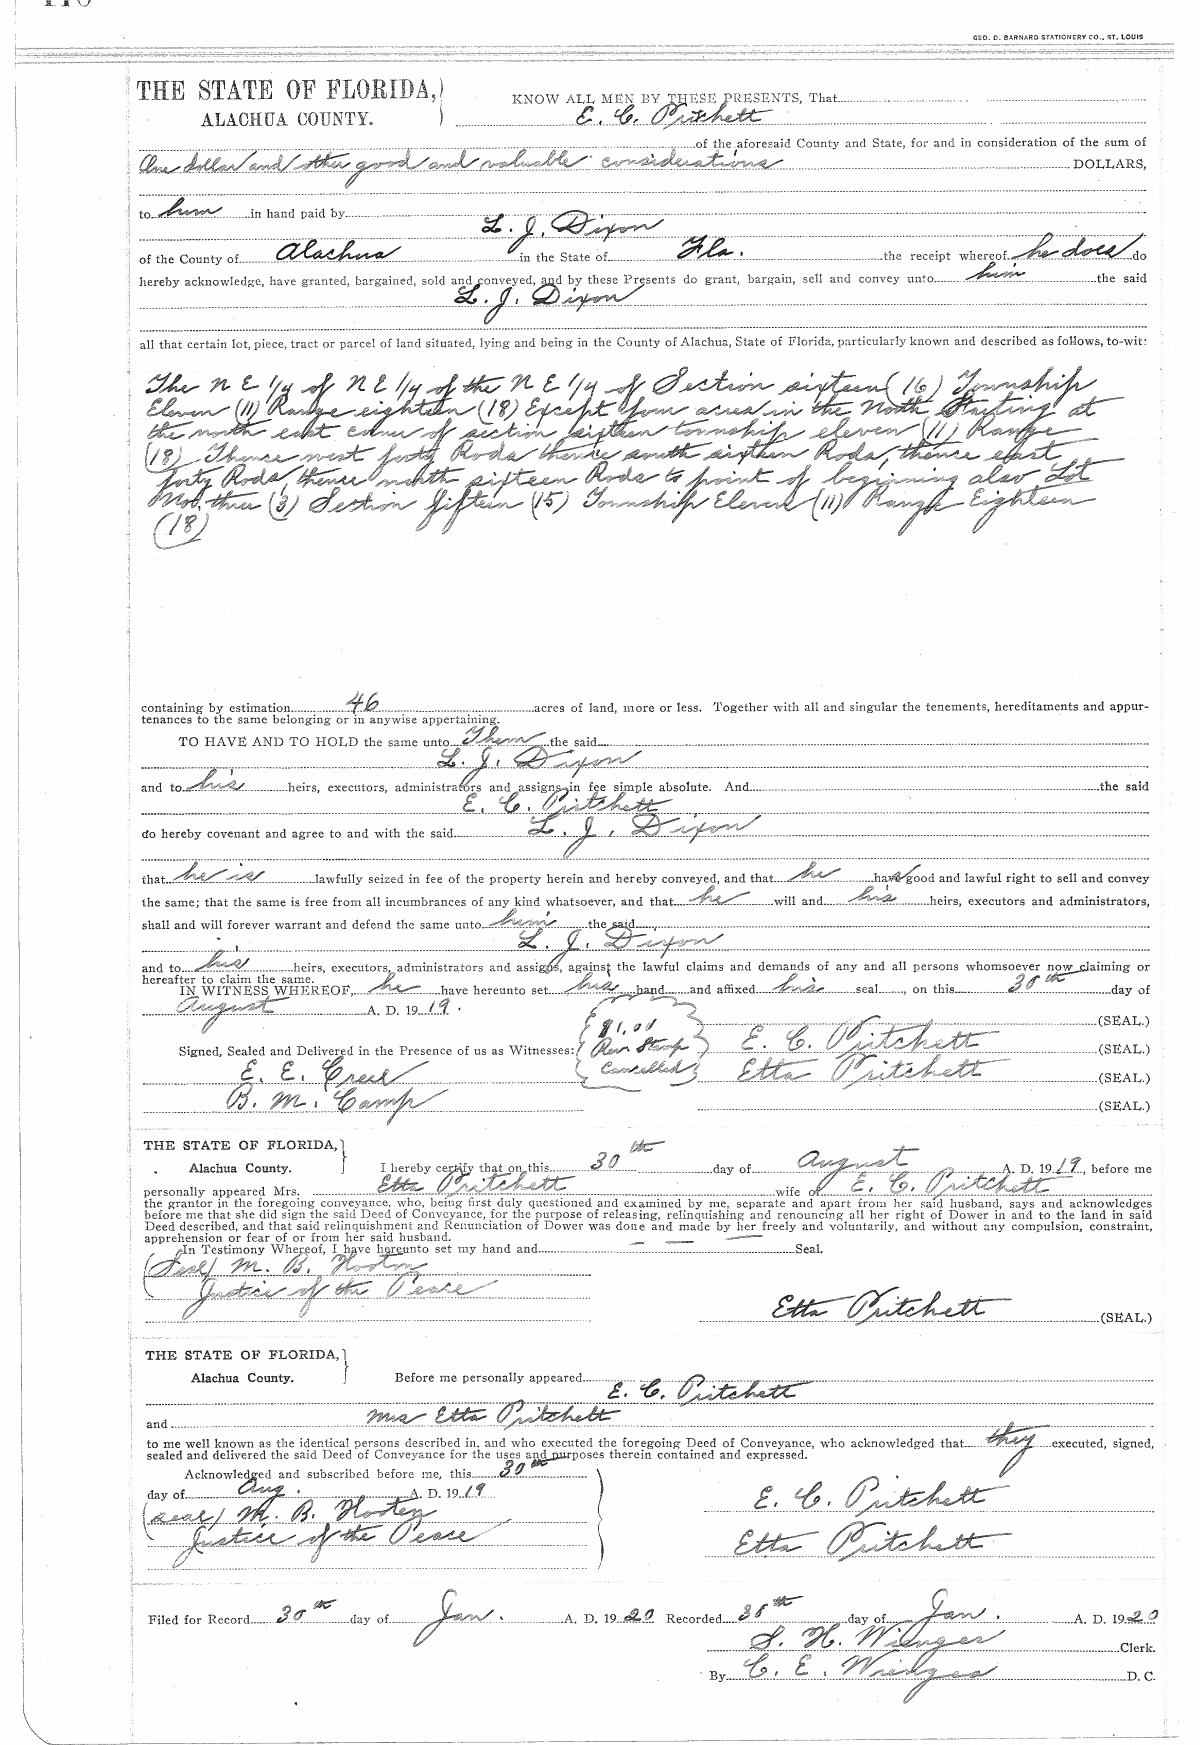 GEO. D. BARNARD STATIONERY CO., ST. LOUIS
THE STATE OF FLORIDA,
ALACHUA COUNTY.
KNOW ALL MEN BY THESE PRESENTS, That
E. C. Pritchett
of the aforesaid County and State, for and in consideration of the sum of
One dollar and other good and valuable considerations DOLLARS,
to him in hand paid by
L. J. Dixon
of the County of Alachua in the State of Fla. the receipt whereof he does do
hereby acknowledge, have granted, bargained, sold and conveyed, and by these Presents do grant, bargain, sell and convey unto him the said
L. J. Dixon
all that certain lot, piece, tract or parcel of land situated, lying and being in the County of Alachua, State of Florida, particularly known and described as follows, to-wit:
The N E 1/4 of N E 1/4 of the N E 1/4 of Section sixteen (16) Township
Eleven (11) Range eighteen (18) Except four acres in the North Starting at
the north east corner of section sixteen township eleven (11) Range
(18) Thence west forty Rods thence south sixteen Rods, thence east
forty Rods, thence north sixteen Rods to point of beginning also Lot
No. three (3) Section fifteen (15) Township Eleven (11) Range Eighteen
(18)
containing by estimation 46 acres of land, more or less. Together with all and singular the tenements, hereditaments and appur-
tenances to the same belonging or in anywise appertaining.
TO HAVE AND TO HOLD the same unto Them the said
L. J. Dixon
and to his heirs, executors, administrators and assigns in fee simple absolute. And the said
E. C. Pritchett
do hereby covenant and agree to and with the said L. J. Dixon
that he is lawfully seized in fee of the property herein and hereby conveyed, and that he have good and lawful right to sell and convey
the same; that the same is free from all incumbrances of any kind whatsoever, and that he will and his heirs, executors and administrators,
shall and will forever warrant and defend the same unto him the said
L. J. Dixon
and to his heirs, executors, administrators and assigns, against the lawful claims and demands of any and all persons whomsoever now claiming or
hereafter to claim the same.
IN WITNESS WHEREOF, he have hereunto set his hand and affixed his seal, on this 30th day of
August A. D. 1919.
$1.00
Rev. Stamp
Cancelled
(SEAL.)
Signed, Sealed and Delivered in the Presence of us as Witnesses: E. C. Pritchett (SEAL.)
E. E. Creel Etta Pritchett (SEAL.)
B. M. Camp (SEAL.)
THE STATE OF FLORIDA,
Alachua County.
I hereby certify that on this 30th day of August A. D. 1919, before me
personally appeared Mrs. Etta Pritchett wife of E. C. Pritchett
the grantor in the foregoing conveyance, who, being first duly questioned and examined by me, separate and apart from her said husband, says and acknowledges
before me that she did sign the said Deed of Conveyance, for the purpose of releasing, relinquishing and renouncing all her right of Dower in and to the land in said
Deed described, and that said relinquishment and Renunciation of Dower was done and made by her freely and voluntarily, and without any compulsion, constraint,
apprehension or fear of or from her said husband.
In Testimony Whereof, I have hereunto set my hand and Seal.
(Seal) M. B. Hooten
Justice of the Peace
Etta Pritchett (SEAL.)
THE STATE OF FLORIDA,
Alachua County.
Before me personally appeared
E. C. Pritchett
and Mrs Etta Pritchett
to me well known as the identical persons described in, and who executed the foregoing Deed of Conveyance, who acknowledged that they executed, signed,
sealed and delivered the said Deed of Conveyance for the uses and purposes therein contained and expressed.
Acknowledged and subscribed before me, this 30th
day of Aug. A. D. 1919
(seal) M. B. Hooten
Justice of the Peace
E. C. Pritchett
Etta Pritchett
Filed for Record 30th day of Jan. A. D. 1920 Recorded 30th day of Jan. A. D. 1920
S. H. Wienges Clerk.
By C. E. Wienges D. C.